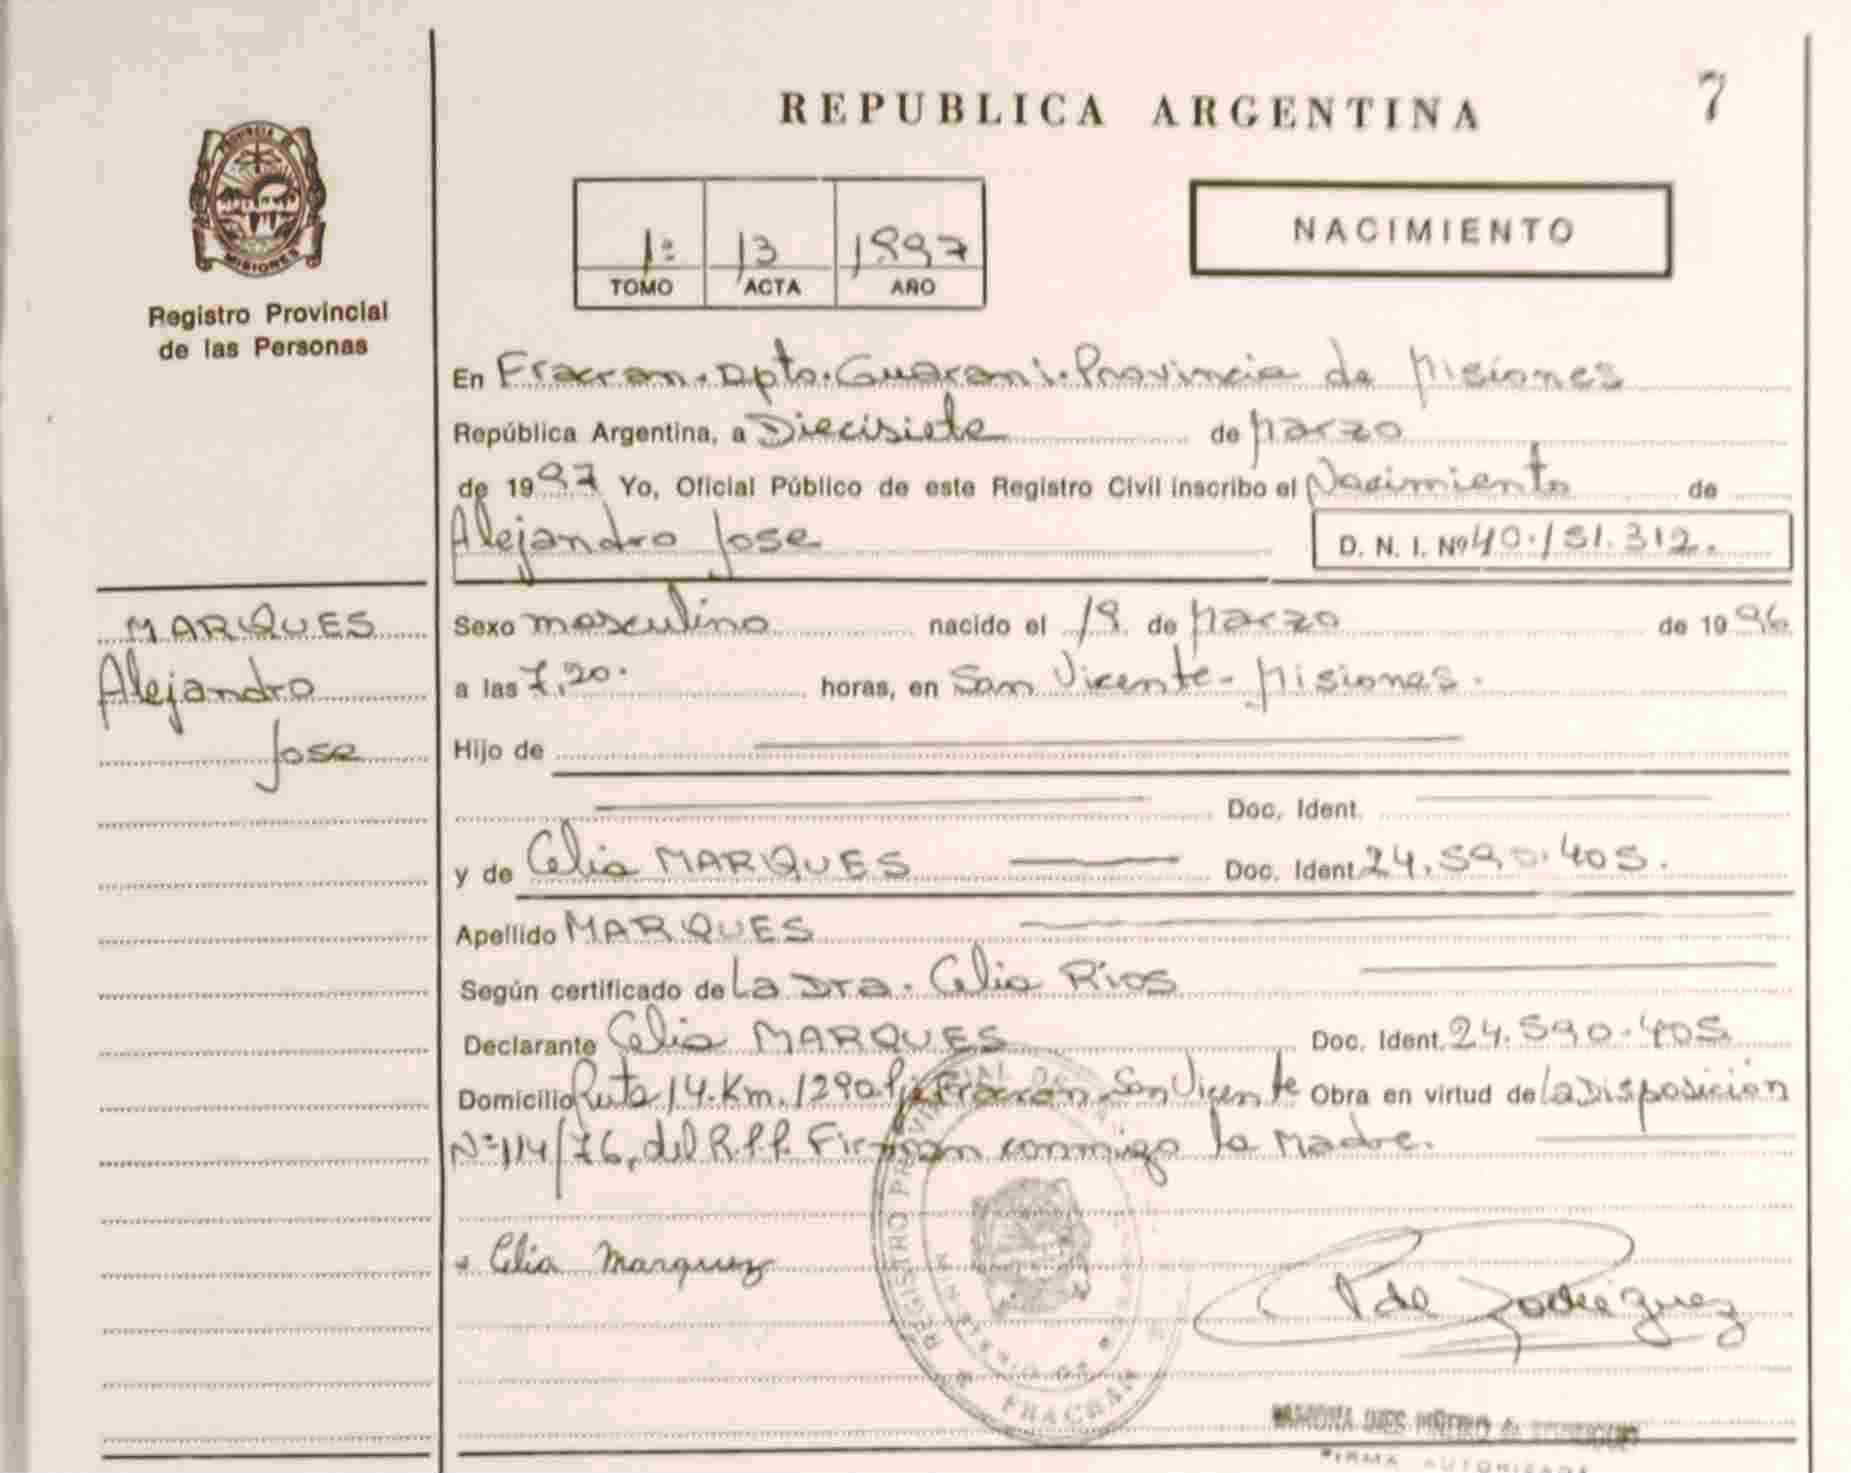 REPUBLICA ARGENTINA
7
PROVINCIA DE
MISIONES
Registro Provincial
de las Personas
1º 13 1997
TOMO ACTA AÑO
NACIMIENTO
En Fracran. Dpto. Guarani. Provincia de Misiones
República Argentina, a Diecisiete de Marzo
de 1997 Yo, Oficial Público de este Registro Civil inscribo el Nacimiento de
Alejandro Jose
D. N. I. Nº 40.151.312.
MARQUES
Alejandro
Jose
Sexo masculino nacido el 19 de Marzo de 1996
a las 7,20. horas, en San Vicente - Misiones.
Hijo de
Doc. Ident.
y de Celia MARQUES Doc. Ident. 24.590.405.
Apellido MARQUES
Según certificado de La Dra. Celia Rios
Declarante Celia MARQUES Doc. Ident. 24.590.405
Domicilio Ruta 14. Km. 1290 Pje Fracran San Vicente Obra en virtud de la Disposición
Nº 114/76, del R.P.P. Firman conmigo la Madre.
Celia Marquez
REGISTRO PROVINCIAL DE
FRACRAN
P de Rodriguez
FIRMA AUTORIZADA